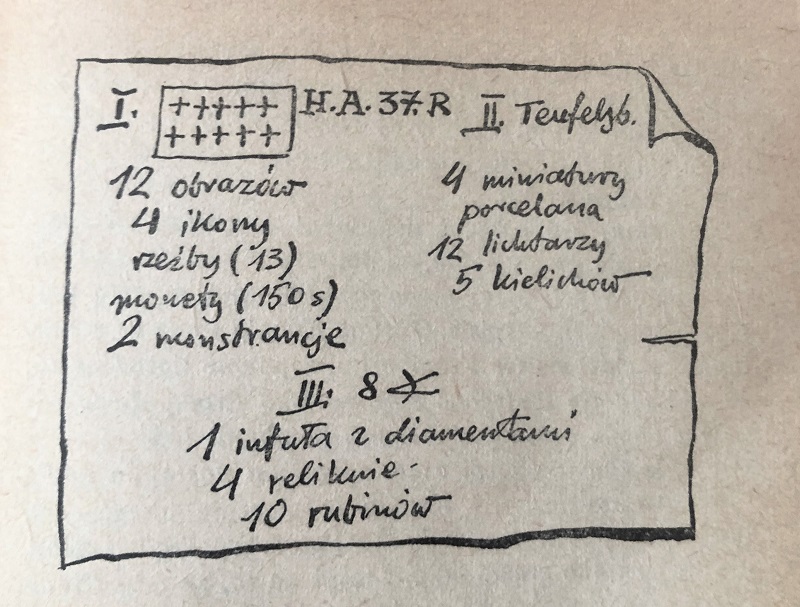 I. +++++ +++++ H.A. 37.R
12 obrazów
4 ikony
rzeźby (13)
monety (150 s)
2 monstrancje
II. Teufelsb.
4 miniatury
porcelana
12 lichtarzy
5 kielichów
III. 8
1 infuła z diamentami
4 relikwie
10 rubinów